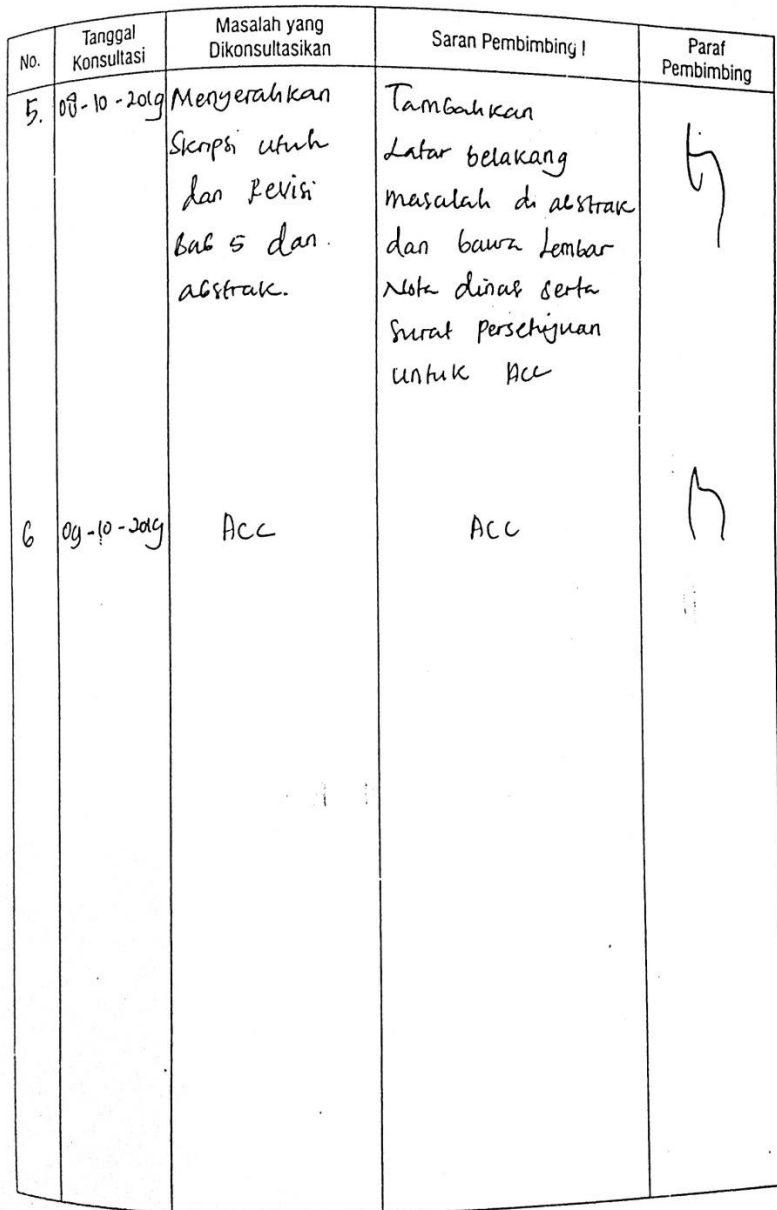 No.
Tanggal
Konsultasi
Masalah yang
Dikonsultasikan
Saran Pembimbing I
Paraf
Pembimbing
5.
08-10-2019
Menyerahkan
Skripsi utuh
dan Revisi
Bab 5 dan.
abstrak.
Tambahkan
Latar belakang
masalah di abstrak
dan bawa Lembar
Nota dinas serta
Surat Persetujuan
untuk Acc
6
09-10-2019
Acc
Acc